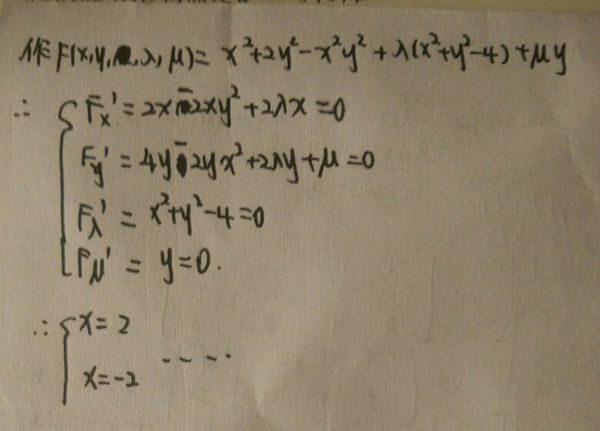 作F(x,y,λ,μ)= x²+2y²-x²y²+λ(x²+y²-4)+μy
∴ { Fx' = 2x-2xy²+2λx=0
Fy' = 4y-2yx²+2λy+μ=0
Fλ' = x²+y²-4=0
Fμ' = y=0.
∴ { x=2
x=-2 ....